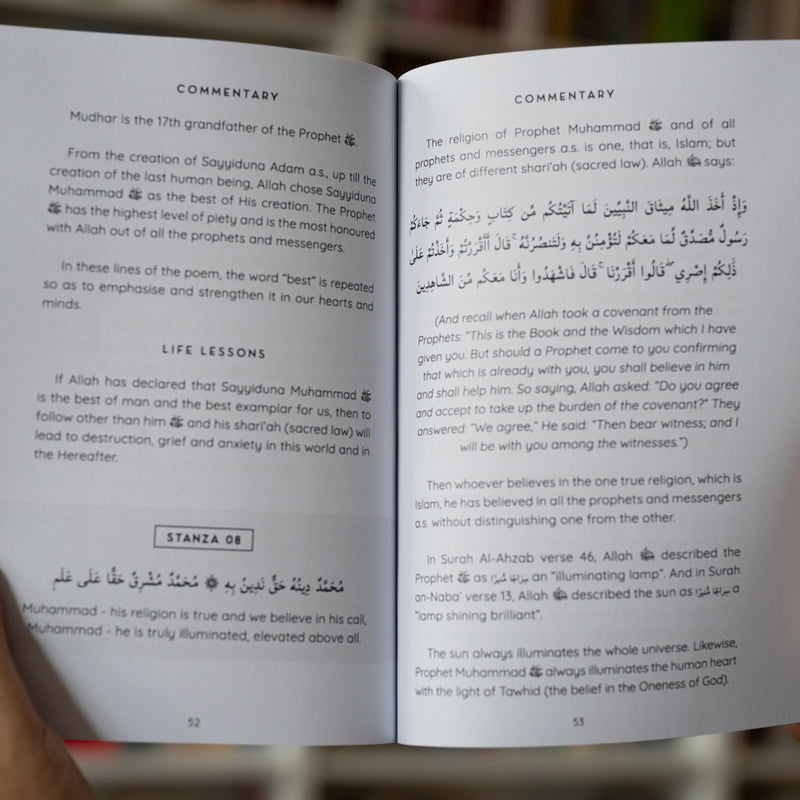 COMMENTARY
Mudhar is the 17th grandfather of the Prophet ﷺ.
From the creation of Sayyiduna Adam a.s., up till the
creation of the last human being, Allah chose Sayyiduna
Muhammad ﷺ as the best of His creation. The Prophet
ﷺ has the highest level of piety and is the most honoured
with Allah out of all the prophets and messengers.
In these lines of the poem, the word “best” is repeated
so as to emphasise and strengthen it in our hearts and
minds.
LIFE LESSONS
If Allah has declared that Sayyiduna Muhammad ﷺ
is the best of man and the best examplar for us, then to
follow other than him ﷺ and his shari’ah (sacred law) will
lead to destruction, grief and anxiety in this world and in
the Hereafter.
STANZA 08
مُحَمَّدٌ دِينُهُ حَقٌّ نَدِينُ بِهِ ۞ مُحَمَّدٌ مُشْرِقٌ حَقًّا عَلَى عَلَمِ
Muhammad - his religion is true and we believe in his call,
Muhammad - he is truly illuminated, elevated above all.
52
COMMENTARY
The religion of Prophet Muhammad ﷺ and of all
prophets and messengers a.s. is one, that is, Islam; but
they are of different shari’ah (sacred law). Allah says:
وَإِذْ أَخَذَ اللَّهُ مِيثَاقَ النَّبِيِّينَ لَمَا آتَيْتُكُم مِّن كِتَابٍ وَحِكْمَةٍ ثُمَّ جَاءَكُمْ
رَسُولٌ مُّصَدِّقٌ لِّمَا مَعَكُمْ لَتُؤْمِنُنَّ بِهِ وَلَتَنصُرُنَّهُ ۚ قَالَ أَأَقْرَرْتُمْ وَأَخَذْتُمْ عَلَىٰ
ذَٰلِكُمْ إِصْرِي ۖ قَالُوا أَقْرَرْنَا ۚ قَالَ فَاشْهَدُوا وَأَنَا مَعَكُم مِّنَ الشَّاهِدِينَ
(And recall when Allah took a covenant from the
Prophets: “This is the Book and the Wisdom which I have
given you. But should a Prophet come to you confirming
that which is already with you, you shall believe in him
and shall help him. So saying, Allah asked: “Do you agree
and accept to take up the burden of the covenant?” They
answered: “We agree,” He said: “Then bear witness; and I
will be with you among the witnesses.”)
Then whoever believes in the one true religion, which is
Islam, he has believed in all the prophets and messengers
a.s. without distinguishing one from the other.
In Surah Al-Ahzab verse 46, Allah described the
Prophet ﷺ as سِرَاجًا مُّنِيرًا an “illuminating lamp”. And in Surah
an-Naba’ verse 13, Allah described the sun as سِرَاجًا مُّنِيرًا a
“lamp shining brilliant”.
The sun always illuminates the whole universe. Likewise,
Prophet Muhammad ﷺ always illuminates the human heart
with the light of Tawhid (the belief in the Oneness of God).
53